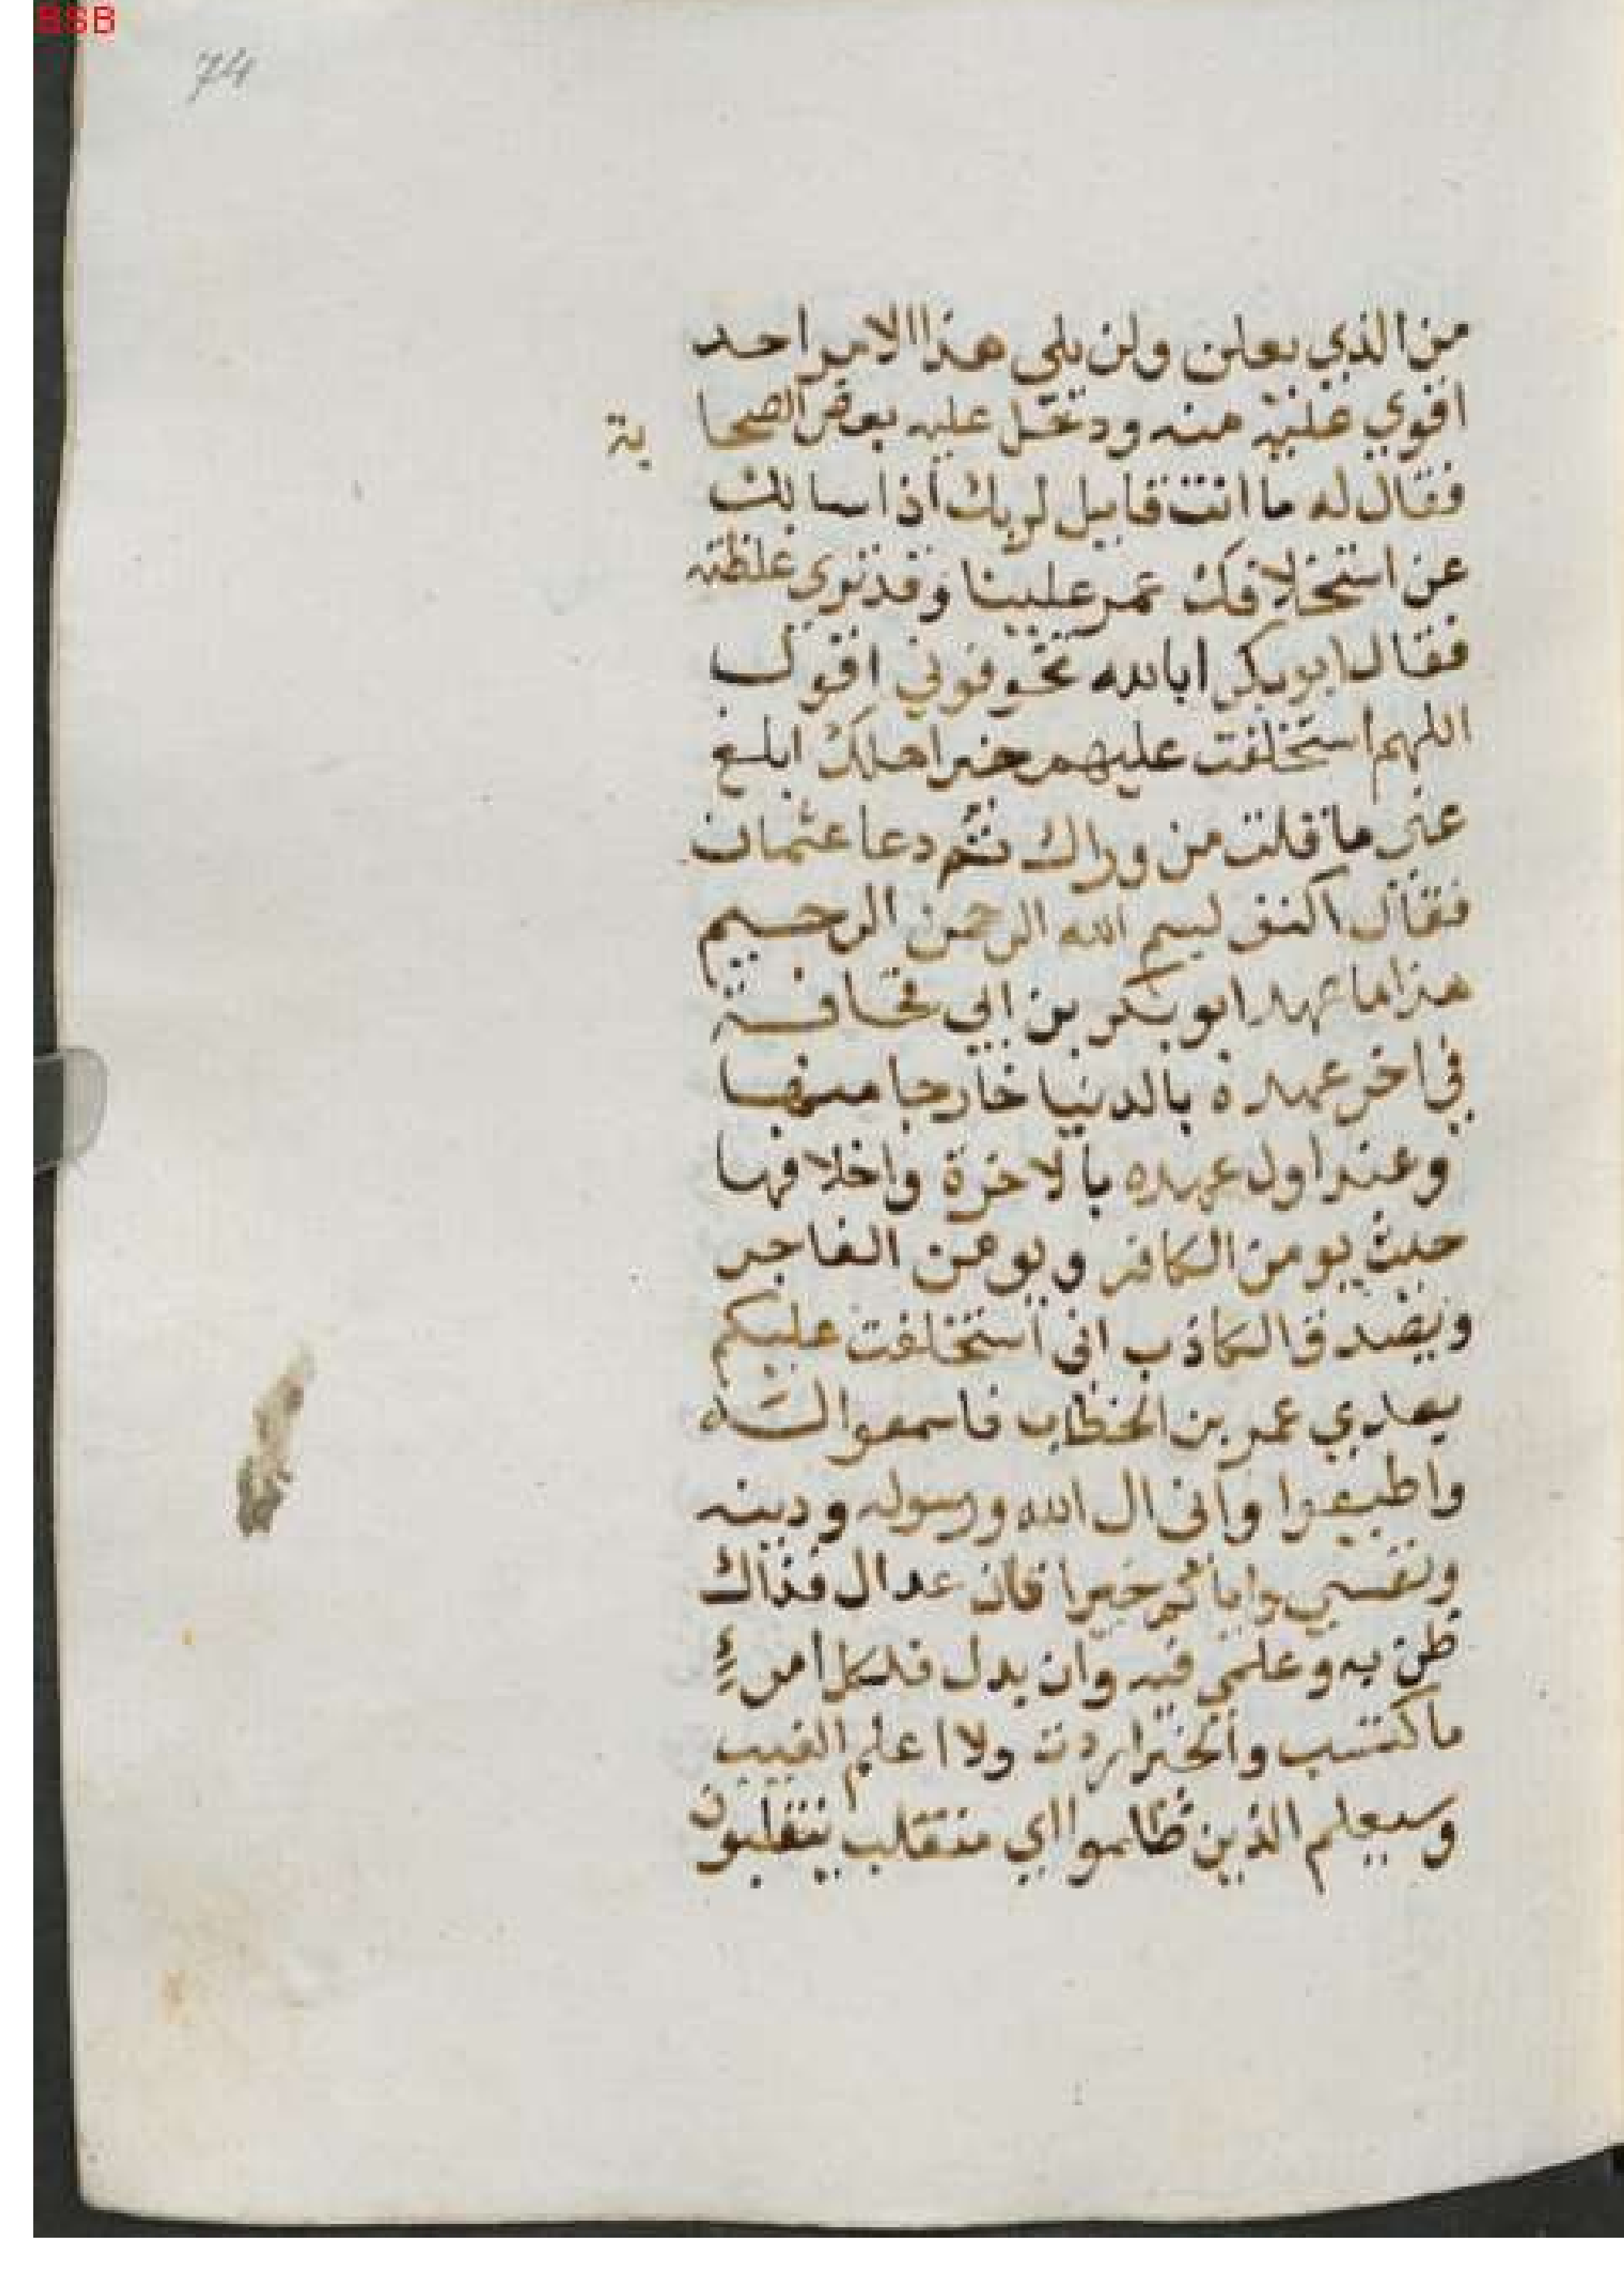 BSB
74
من الذي يعلن ولن يلي هذا الامر احد
اقوي عليه منه ودخل عليه بعض الصحابة
فقال له ما انت قايل لربك اذا سالك
عن استخلافك عمر علينا وقد تري غلظته
فقال ابو بكر ابالله تخوفوني اقول
اللهم استخلفت عليهم خير اهلك ابلغ
عني ما قلت من وراك ثم دعا عثمان
فقال اكتب بسم الله الرحمن الرحيم
هذا ما عهد ابو بكر بن ابي قحافة
في اخر عهده بالدنيا خارجا منها
وعند اول عهده بالاخرة واخلافها
حيث يومن الكافر ويومن الفاجر
ويصدق الكاذب اني استخلفت عليكم
بعدي عمر بن الخطاب فاسمعوا له
واطيعوا واني ال الله ورسوله ودينه
ونفسي واياكم خيرا فان عدال فذاك
ظن به وعلمي فيه وان بدل فلكل امرء
ما كتسب والخير اردت ولا اعلم الغيب
وسيعلم الذين ظالموا اي منقلب ينقلبون